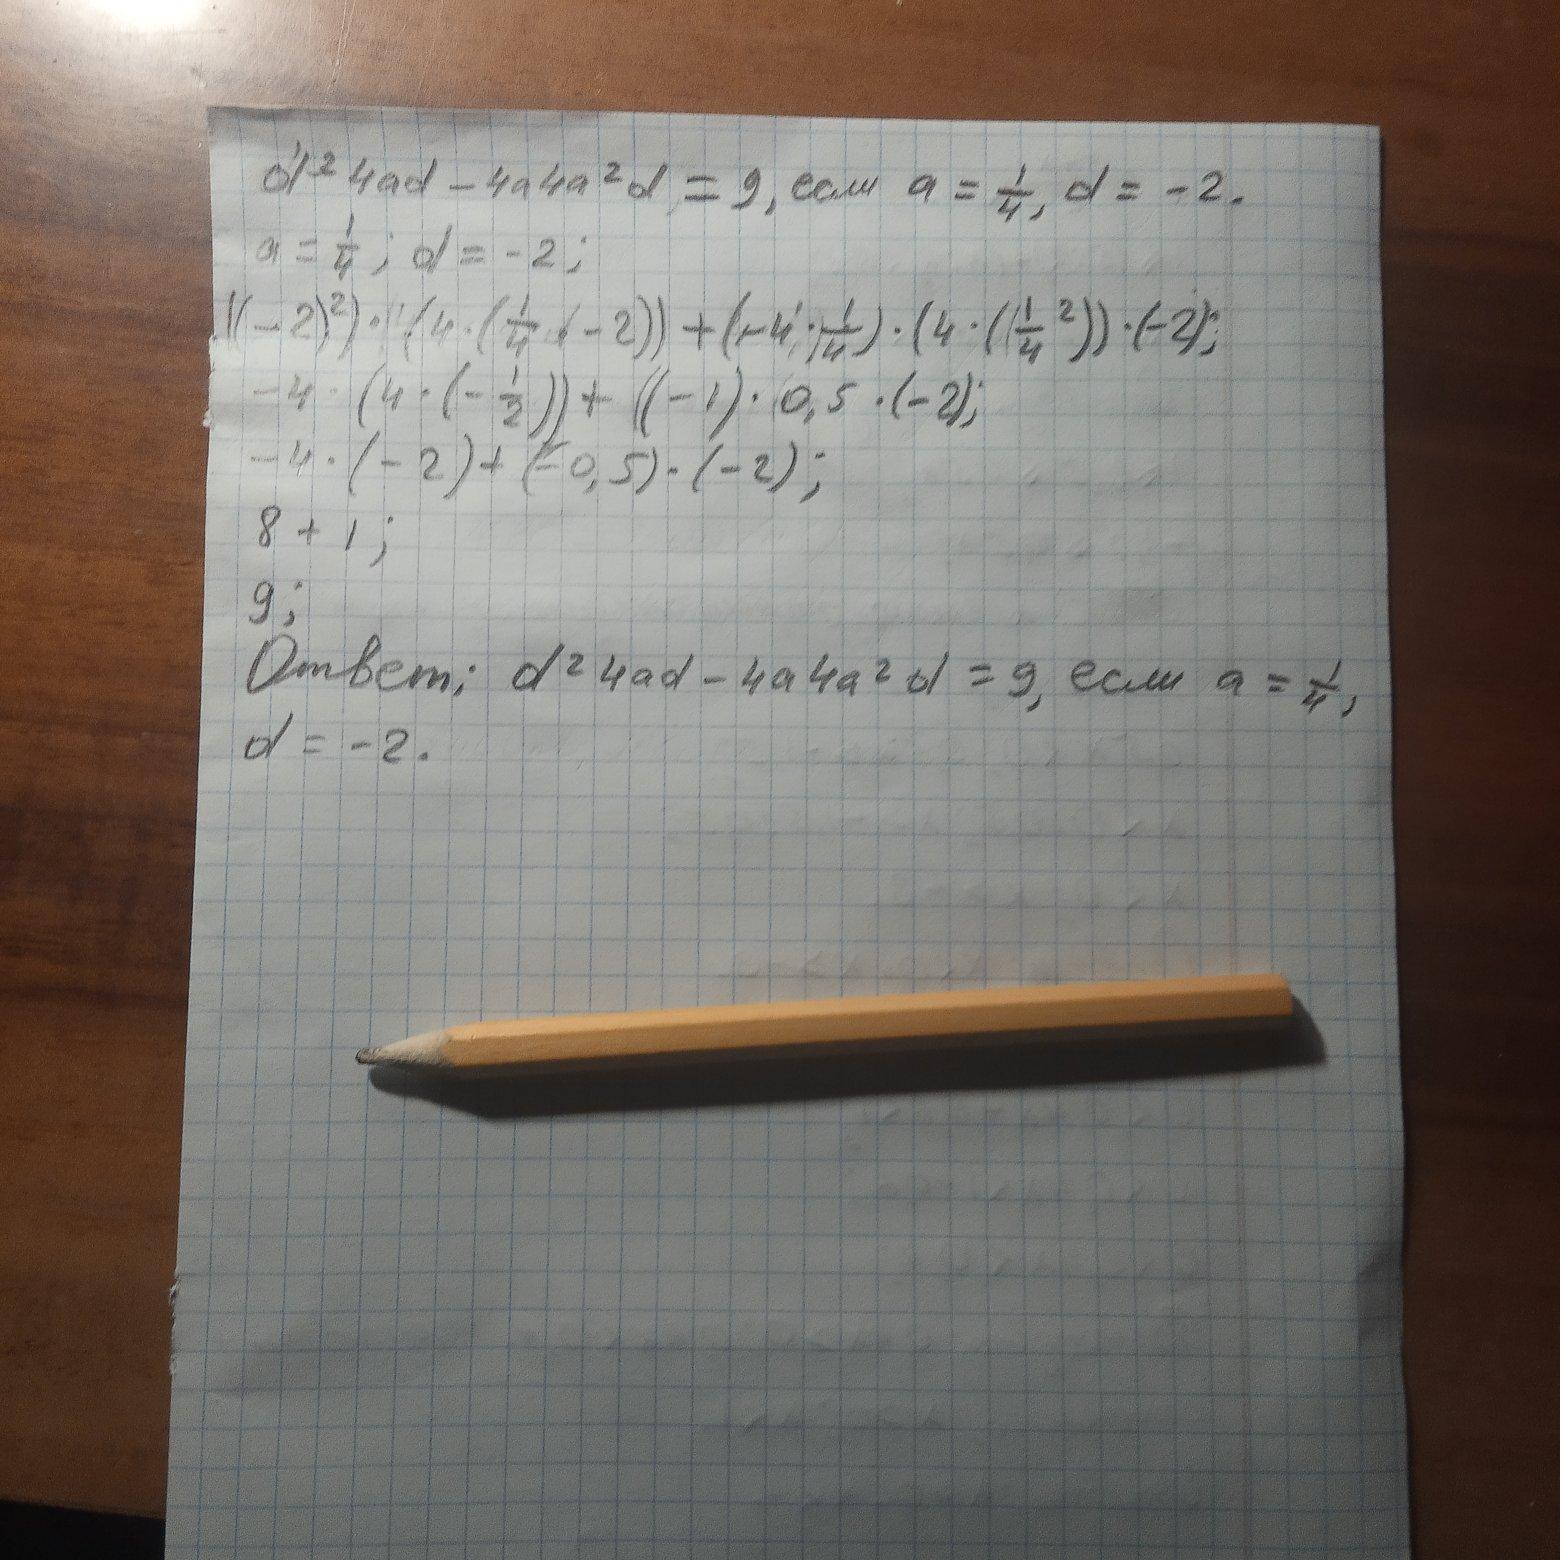 d² 4ad - 4a4a²d = 9, если a = 1/4, d = -2.
a = 1/4; d = -2;
((-2)²) · (4 · (1/4 · (-2)) + (-4 · 1/4) · (4 · (1/4²)) · (-2);
-4 · (4 · (-1/2)) + ((-1) · 0,5 · (-2);
-4 · (-2) + (-0,5) · (-2);
8 + 1;
9;
Ответ: d² 4ad - 4a4a²d = 9, если a = 1/4,
d = -2.